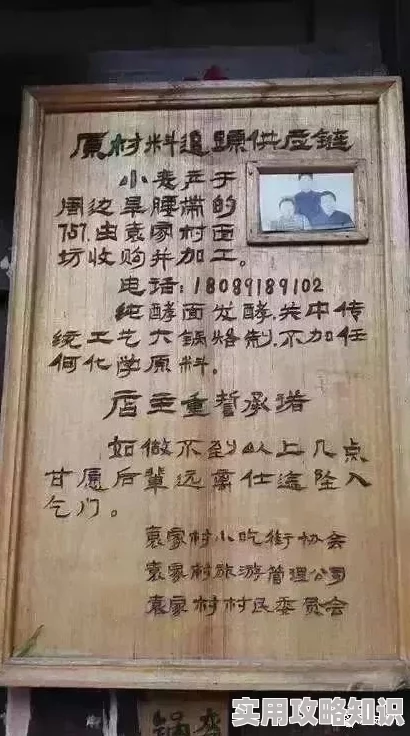 原材料追踪供应链
小麦产于
周边旱腰带的
757.由袁家村面
坊收购并加工。
电话:18089189102
纯酵面发酵.关中传
统工艺六锅烙制.不加任
何化学原料。
店主重誓承诺
如做不到以上几点
甘愿后辈远离仕途坠入
乞门。
袁家村小吃街协会
袁家村旅游管理公司
袁家村村民委员会
锅
实用攻略知识